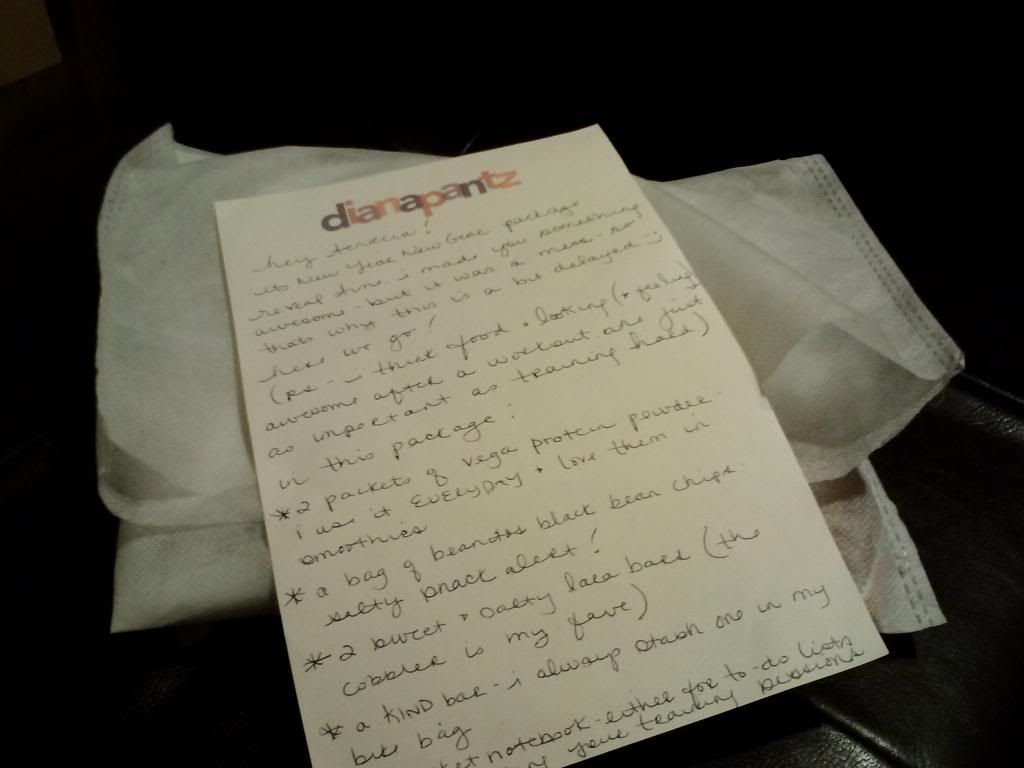 dianapantz
hey
its New Year New Gear package
reveal time. i made you something
awesome - but it was a mess - so
thats why this is a bit delayed :)
here we go!
(ps - i think food + looking (+ feeling)
awesome after a workout are just
as important as training hard)
in this package:
*2 packets of vega protein powder -
i use it EVERYDAY + love them in
smoothies
* a bag of beanitos black bean chips.
salty snack alert!
*2 sweet + salty lara bars (the
cobbler is my fave)
* a KIND bar - i always stash one in my
bike bag
notebook - either for to-do lists
your training sessions